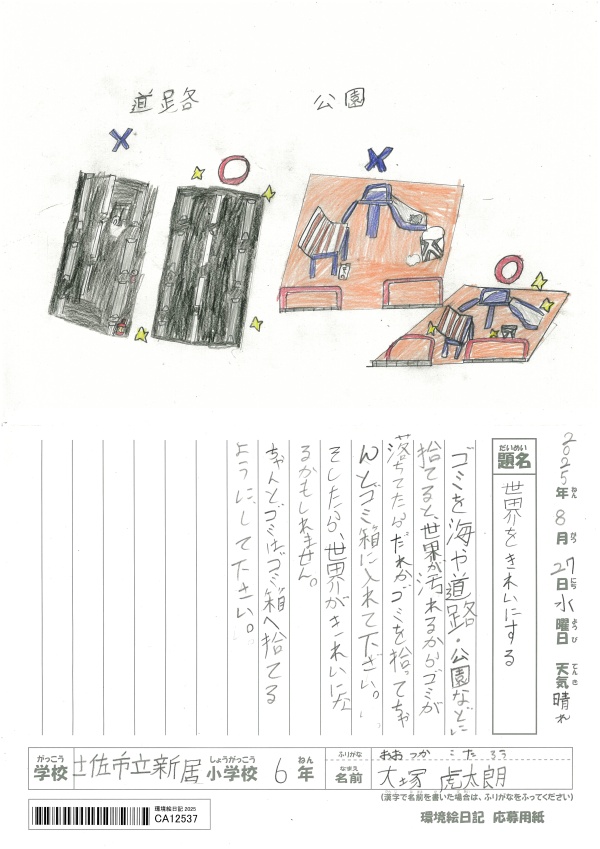 道路
公園
2025年ねん8月がつ27日にち水曜日ようび天気てんき晴れ
だいめい
題名
世界をきれいにする
ゴミを海や道路・公園などに
捨てると、世界が汚れるからゴミが
落ちてたらだれかゴミを拾ってちゃ
んとゴミ箱に入れて下さい。
そしたら、世界がきれいにな
るかもしれません。
ちゃんとゴミはゴミ箱へ捨てる
ようにして下さい。
がっこう
学校
土佐市立新居
しょうがっこう
小学校
6
ねん
年
ふりがな
おおつか こたろう
なまえ
名前
大塚 虎太朗
(漢字で名前を書いた場合は、ふりがなをふってください)
環境絵日記 2025
CA12537
環境絵日記 応募用紙